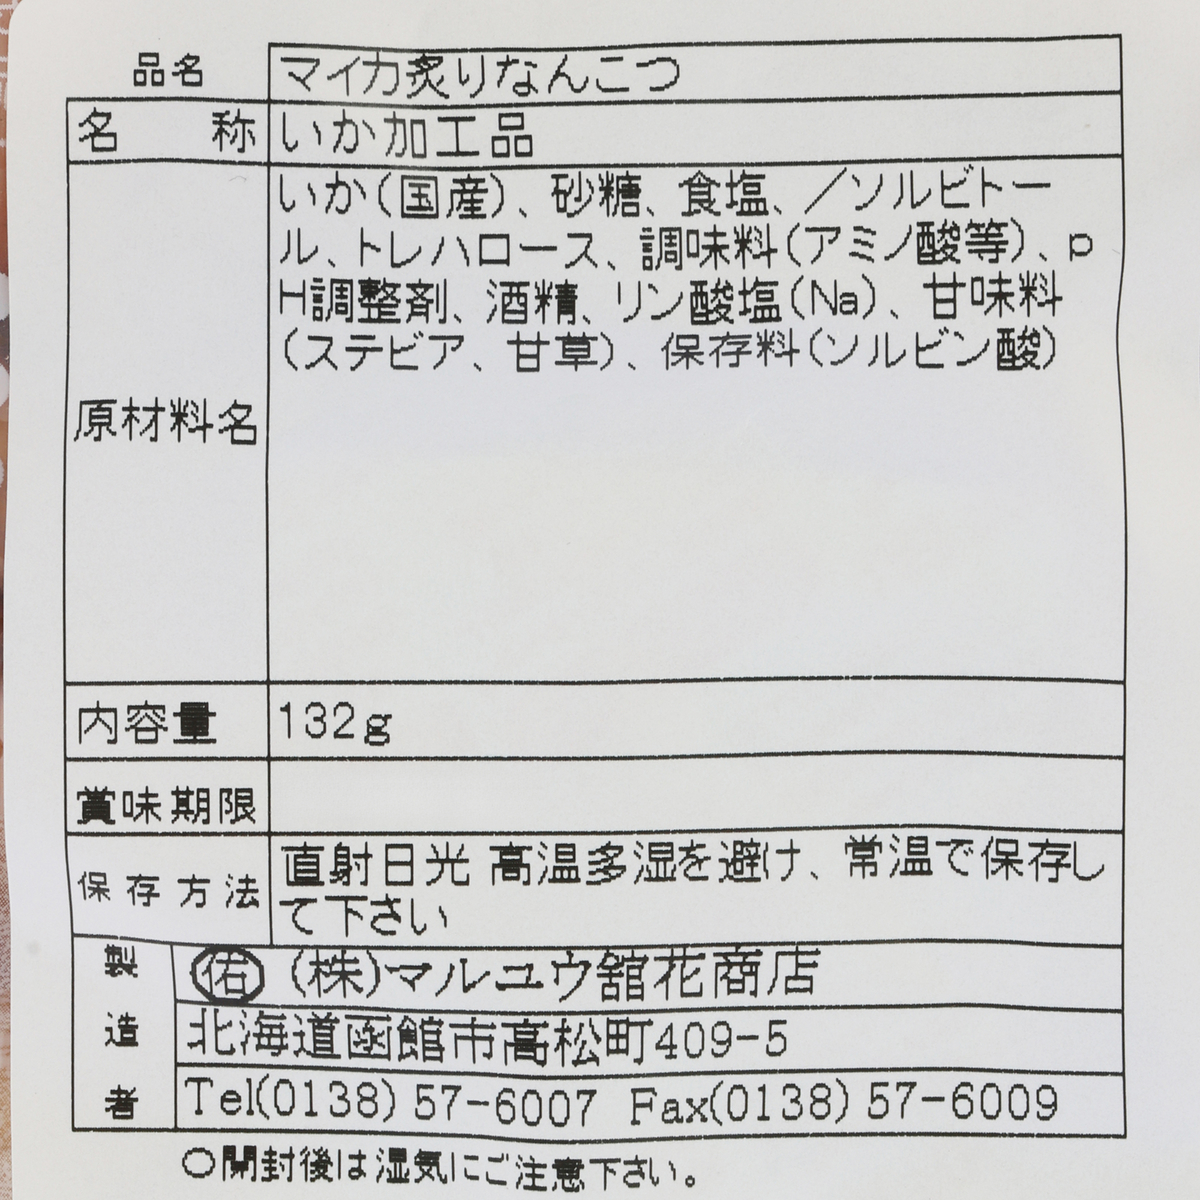 品名 マイカ炙りなんこつ
名称 いか加工品
原材料名
いか(国産)、砂糖、食塩、／ソルビトー
ル、トレハロース、調味料(アミノ酸等)、p
H調整剤、酒精、リン酸塩(Na)、甘味料
(ステビア、甘草)、保存料(ソルビン酸)
内容量 132g
賞味期限
保存方法
直射日光 高温多湿を避け、常温で保存し
て下さい
製造者
佑 (株)マルユウ舘花商店
北海道函館市高松町409-5
Tel(0138) 57-6007 Fax(0138) 57-6009
○開封後は湿気にご注意下さい。